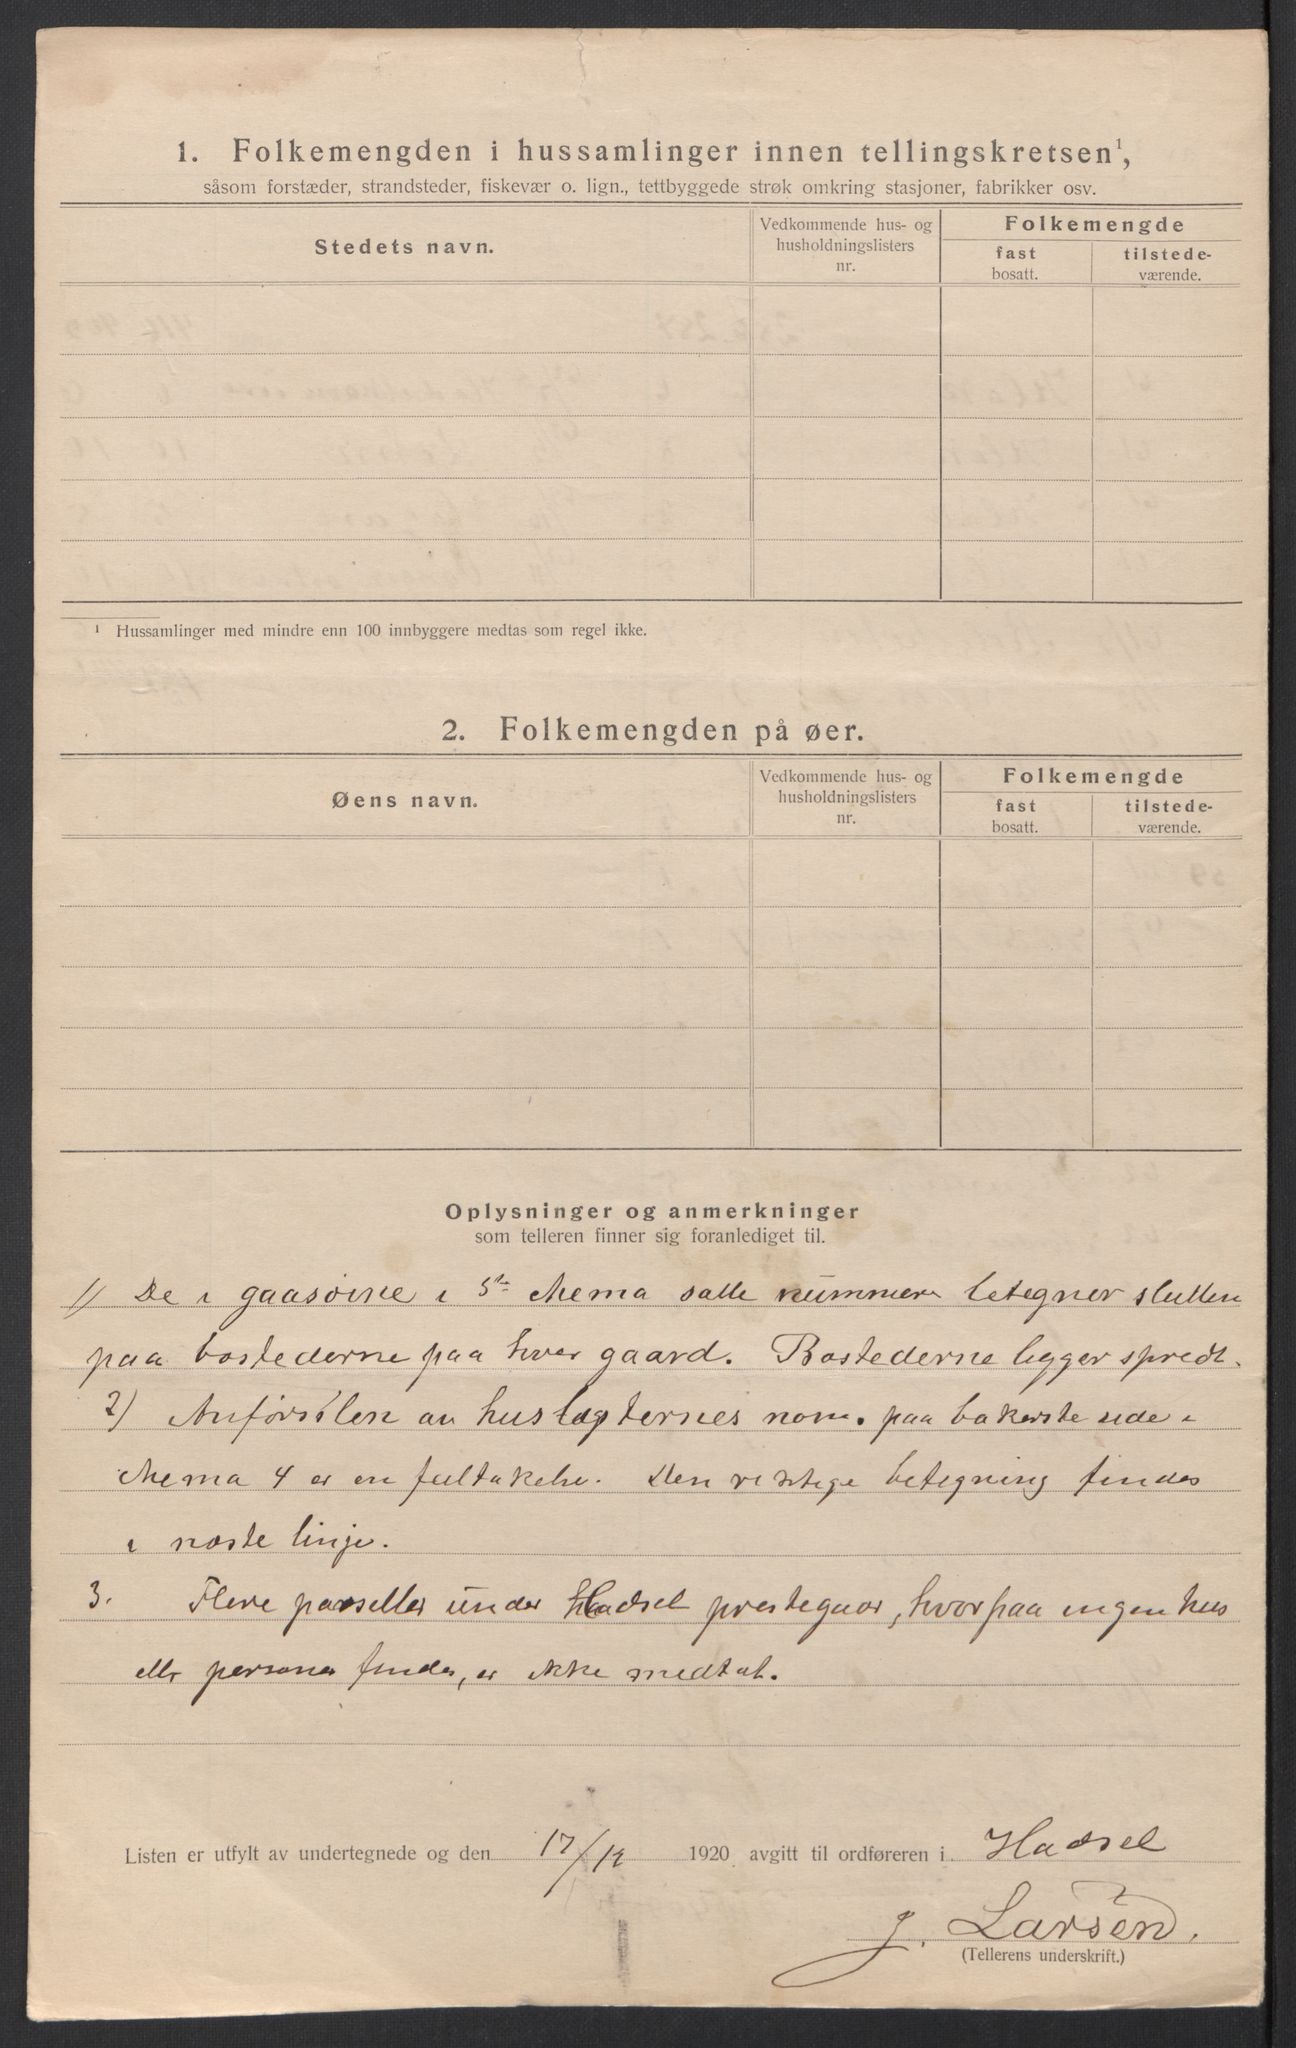 1. Folkemengden i hussamlinger innen tellingskretsen¹,
såsom forstæder, strandsteder, fiskevær o. lign., tettbyggede strøk omkring stasjoner, fabrikker osv.
Stedets navn.
Vedkommende hus- og
husholdningslisters
nr.
Folkemengde
fast
bosatt.
tilstede-
værende.
¹ Hussamlinger med mindre enn 100 innbyggere medtas som regel ikke.
2. Folkemengden på øer.
Øens navn.
Vedkommende hus- og
husholdningslisters
nr.
Folkemengde
fast
bosatt.
tilstede-
værende.
Oplysninger og anmerkninger
som telleren finner sig foranlediget til.
1) De i gaasöine i 5te skema satte nummere betegner slutten
paa bostederne paa hver gaard. Bostederne ligger spredt.
2) Anförselen av huslegternes nom. paa bakerste side i
skema 4 er en feiltakelse. Den rigtige betegning findes
i næste linje.
3. Flere parseller under Hadsel prestegaar, hvorpaa ingen hus
ell. personer findes, er ikke medtat.
Listen er utfylt av undertegnede og den 17/12 1920 avgitt til ordføreren i Hadsel
J. Larsen.
(Tellerens underskrift.)